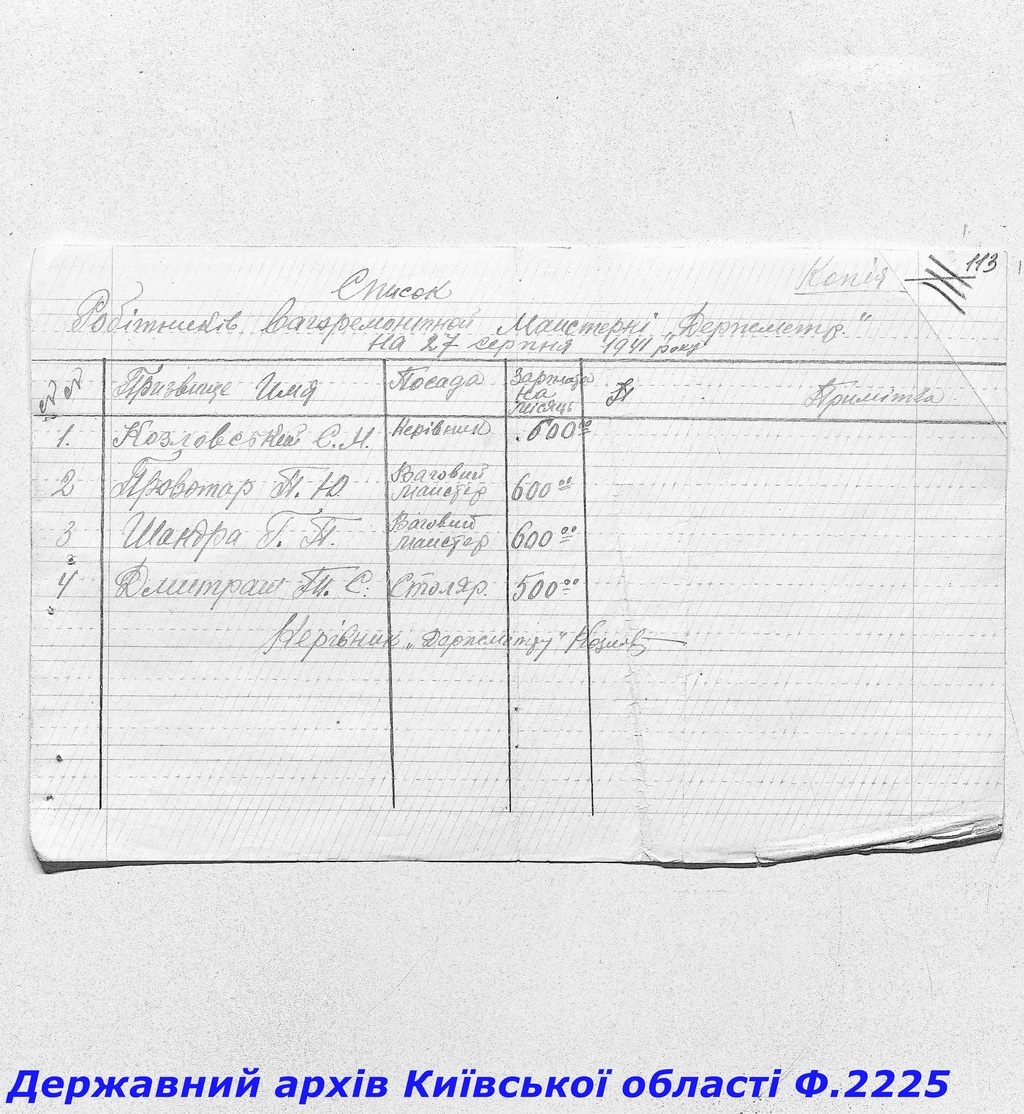 Копія 113
Список
Робітників Вагоремонтной Маистерні „Держметр."
на 27 серпня 1941 року
№№ Призвище Имя Посада Зарплата на місяць Примітка
1. Козловський С.М. Керівник 600⁰⁰
2 Провотар П. Ю. Ваговий маистер 600⁰⁰
3 Шандра Г. П. Ваговий маистер 600⁰⁰
4 Дмитраш П. С. Столяр. 500⁰⁰
Керівник „Держметру"
Державний архів Київської області Ф.2225